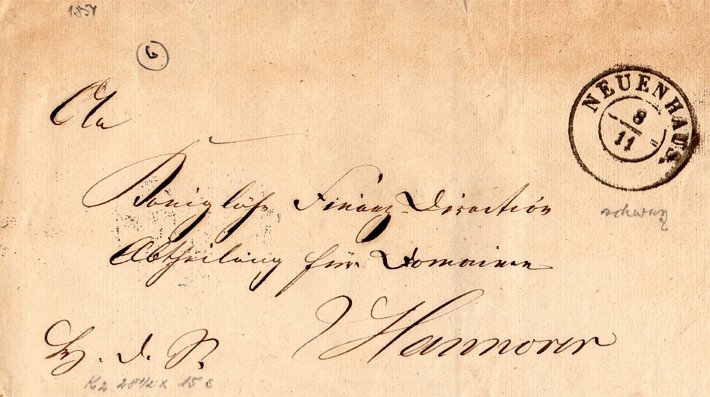 1851
6
An
NEUENHAUS.
8
11
Königliche Finanz-Direction
schwarz
Abtheilung für Domainen
Hannover
H. d. S.
K2 28 1/2 x 15 s